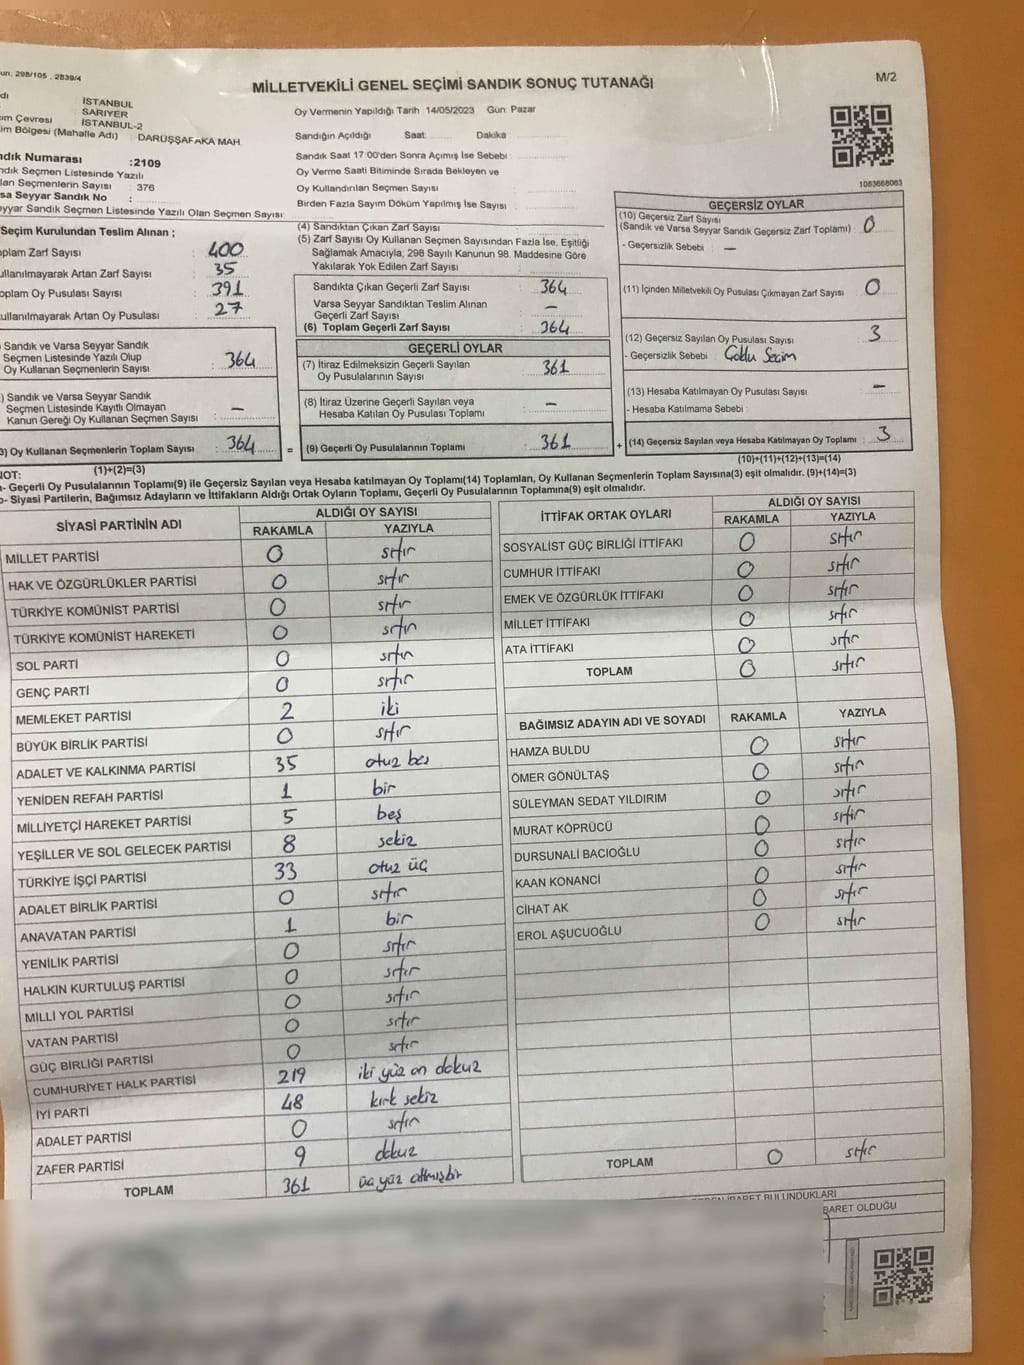 un. 298/105 , 2839/4
MİLLETVEKİLİ GENEL SEÇİMİ SANDIK SONUÇ TUTANAĞI
M/2
dı
İSTANBUL
SARIYER
im Çevresi
İSTANBUL-2
im Bölgesi (Mahalle Adı) : DARÜŞŞAFAKA MAH
ndık Numarası :2109
ndık Seçmen Listesinde Yazılı
lan Seçmenlerin Sayısı : 376
sa Seyyar Sandık No :
eyyar Sandık Seçmen Listesinde Yazılı Olan Seçmen Sayısı:
Oy Vermenin Yapıldığı Tarih : 14/05/2023 Gün: Pazar
Sandığın Açıldığı Saat: Dakika
Sandık Saat 17:00'den Sonra Açımış İse Sebebi :
Oy Verme Saati Bitiminde Sırada Bekleyen ve
Oy Kullandırılan Seçmen Sayısı
Birden Fazla Sayım Döküm Yapılmış İse Sayısı :
1083668063
Seçim Kurulundan Teslim Alınan ;
oplam Zarf Sayısı : 400
ullanılmayarak Artan Zarf Sayısı : 35
oplam Oy Pusulası Sayısı : 391
ullanılmayarak Artan Oy Pusulası : 27
) Sandık ve Varsa Seyyar Sandık
Seçmen Listesinde Yazılı Olup
Oy Kullanan Seçmenlerin Sayısı : 364
) Sandık ve Varsa Seyyar Sandık
Seçmen Listesinde Kayıtlı Olmayan
Kanun Gereği Oy Kullanan Seçmen Sayısı : –
3) Oy Kullanan Seçmenlerin Toplam Sayısı : 364 =
(1)+(2)=(3)
(4) Sandıktan Çıkan Zarf Sayısı
(5) Zarf Sayısı Oy Kullanan Seçmen Sayısından Fazla İse, Eşitliği
Sağlamak Amacıyla, 298 Sayılı Kanunun 98. Maddesine Göre
Yakılarak Yok Edilen Zarf Sayısı :
Sandıkta Çıkan Geçerli Zarf Sayısı : 364
Varsa Seyyar Sandıktan Teslim Alınan
Geçerli Zarf Sayısı : –
(6) Toplam Geçerli Zarf Sayısı : 364
GEÇERLİ OYLAR
(7) İtiraz Edilmeksizin Geçerli Sayılan
Oy Pusulalarının Sayısı : 361
(8) İtiraz Üzerine Geçerli Sayılan veya
Hesaba Katılan Oy Pusulası Toplamı : –
(9) Geçerli Oy Pusulalarının Toplamı : 361 +
GEÇERSİZ OYLAR
(10) Geçersiz Zarf Sayısı
(Sandık ve Varsa Seyyar Sandık Geçersiz Zarf Toplamı) : 0
- Geçersizlik Sebebi : –
(11) İçinden Milletvekili Oy Pusulası Çıkmayan Zarf Sayısı : 0
(12) Geçersiz Sayılan Oy Pusulası Sayısı : 3
- Geçersizlik Sebebi : Çoklu Seçim
(13) Hesaba Katılmayan Oy Pusulası Sayısı : –
- Hesaba Katılmama Sebebi :
(14) Geçersiz Sayılan veya Hesaba Katılmayan Oy Toplamı : 3
(10)+(11)+(12)+(13)=(14)
NOT:
a- Geçerli Oy Pusulalarının Toplamı(9) ile Geçersiz Sayılan veya Hesaba katılmayan Oy Toplamı(14) Toplamları, Oy Kullanan Seçmenlerin Toplam Sayısına(3) eşit olmalıdır. (9)+(14)=(3)
b- Siyasi Partilerin, Bağımsız Adayların ve İttifakların Aldığı Ortak Oyların Toplamı, Geçerli Oy Pusulalarının Toplamına(9) eşit olmalıdır.
SİYASİ PARTİNİN ADI ALDIĞI OY SAYISI
RAKAMLA YAZIYLA
MİLLET PARTİSİ 0 sıfır
HAK VE ÖZGÜRLÜKLER PARTİSİ 0 sıfır
TÜRKİYE KOMÜNİST PARTİSİ 0 sıfır
TÜRKİYE KOMÜNİST HAREKETİ 0 sıfır
SOL PARTİ 0 sıfır
GENÇ PARTİ 0 sıfır
MEMLEKET PARTİSİ 2 iki
BÜYÜK BİRLİK PARTİSİ 0 sıfır
ADALET VE KALKINMA PARTİSİ 35 otuz beş
YENİDEN REFAH PARTİSİ 1 bir
MİLLİYETÇİ HAREKET PARTİSİ 5 beş
YEŞİLLER VE SOL GELECEK PARTİSİ 8 sekiz
TÜRKİYE İŞÇİ PARTİSİ 33 otuz üç
ADALET BİRLİK PARTİSİ 0 sıfır
ANAVATAN PARTİSİ 1 bir
YENİLİK PARTİSİ 0 sıfır
HALKIN KURTULUŞ PARTİSİ 0 sıfır
MİLLİ YOL PARTİSİ 0 sıfır
VATAN PARTİSİ 0 sıfır
GÜÇ BİRLİĞİ PARTİSİ 0 sıfır
CUMHURİYET HALK PARTİSİ 219 iki yüz on dokuz
İYİ PARTİ 48 kırk sekiz
ADALET PARTİSİ 0 sıfır
ZAFER PARTİSİ 9 dokuz
TOPLAM 361 üç yüz altmış bir
İTTİFAK ORTAK OYLARI ALDIĞI OY SAYISI
RAKAMLA YAZIYLA
SOSYALİST GÜÇ BİRLİĞİ İTTİFAKI 0 sıfır
CUMHUR İTTİFAKI 0 sıfır
EMEK VE ÖZGÜRLÜK İTTİFAKI 0 sıfır
MİLLET İTTİFAKI 0 sıfır
ATA İTTİFAKI 0 sıfır
TOPLAM 0 sıfır
BAĞIMSIZ ADAYIN ADI VE SOYADI RAKAMLA YAZIYLA
HAMZA BULDU 0 sıfır
ÖMER GÖNÜLTAŞ 0 sıfır
SÜLEYMAN SEDAT YILDIRIM 0 sıfır
MURAT KÖPRÜCÜ 0 sıfır
DURSUNALİ BACIOĞLU 0 sıfır
KAAN KONANCİ 0 sıfır
CİHAT AK 0 sıfır
EROL AŞUCUOĞLU 0 sıfır
TOPLAM 0 sıfır
İBARET BULUNDUKLARI
BARET OLDUĞU